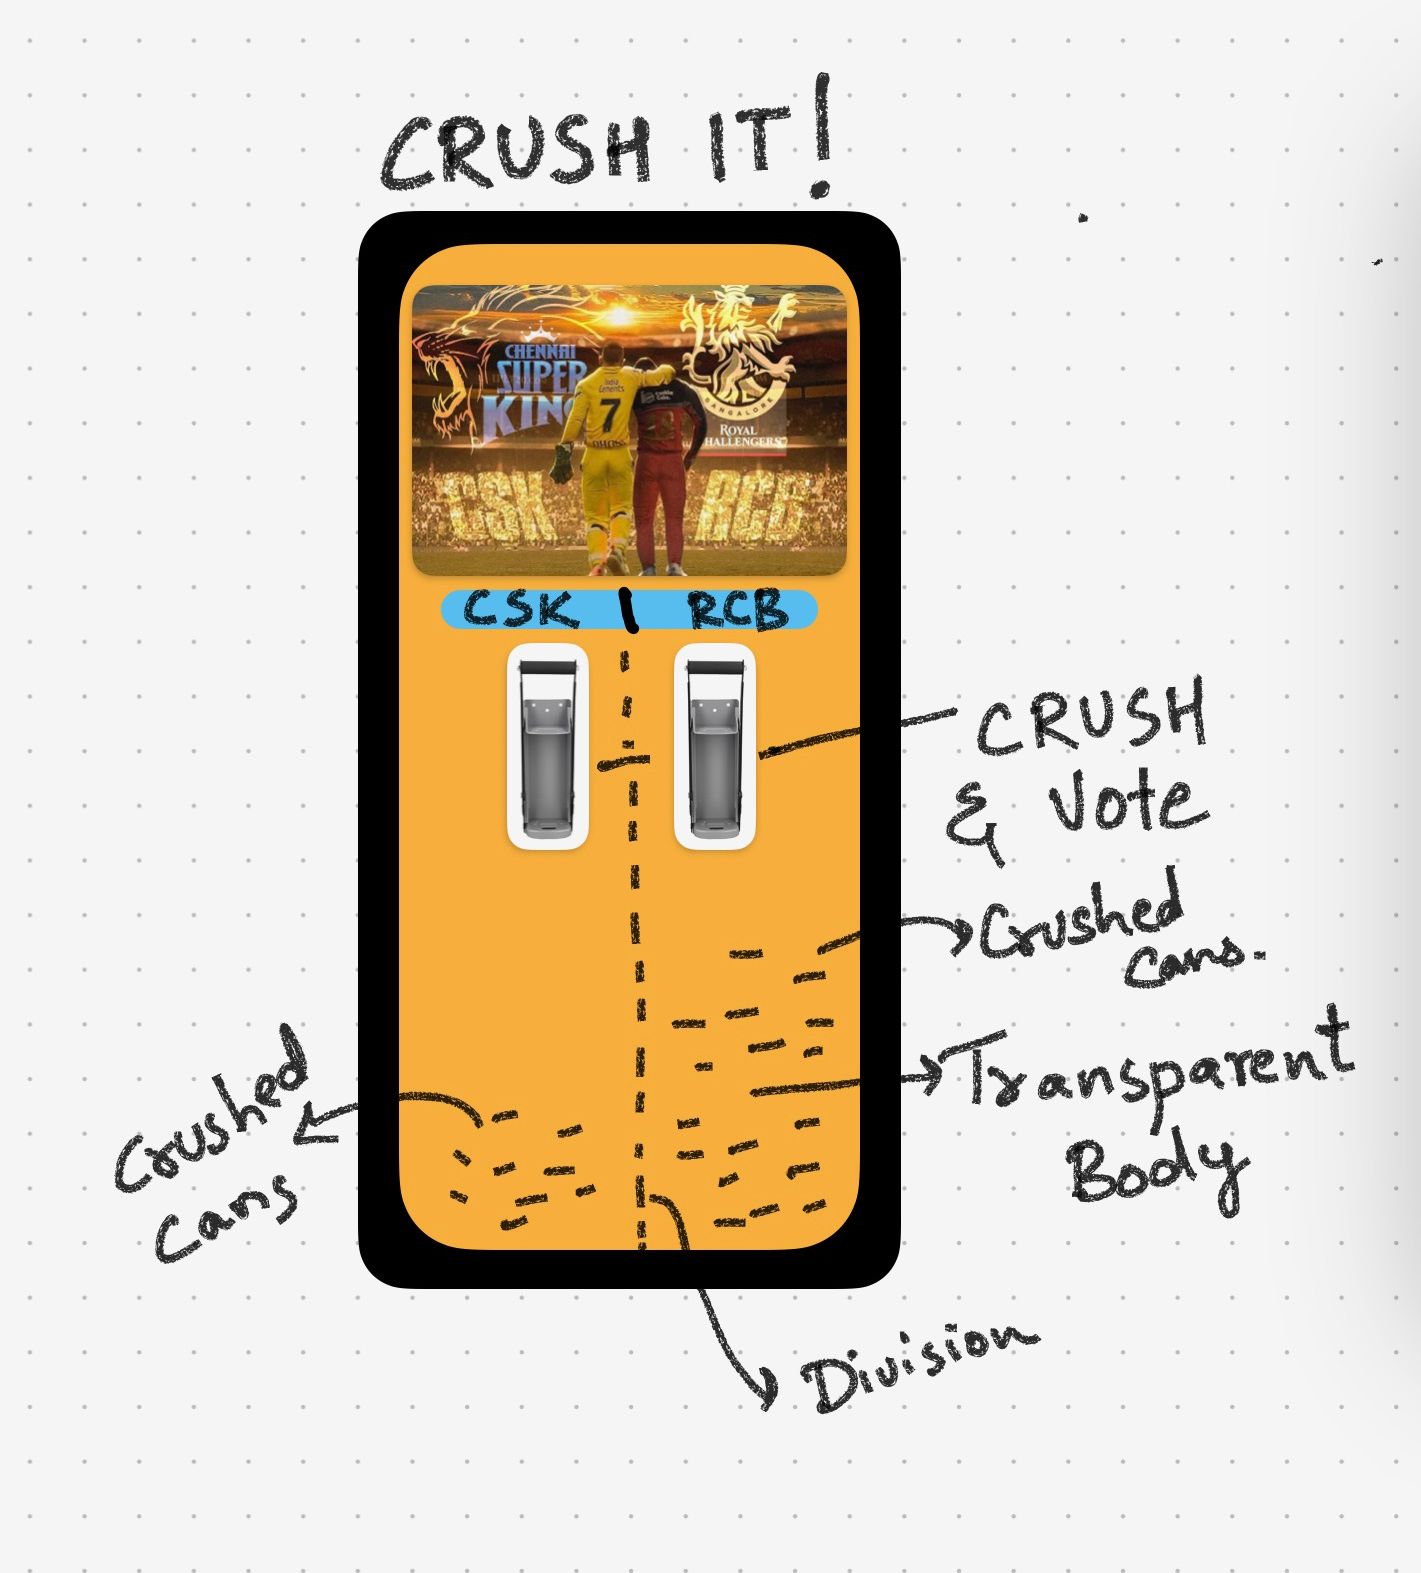 CRUSH IT!
CHENNAI
SUPER
KING
India
Cements
7
BANGALORE
ROYAL
HALLENGERS
CSK RCB
CSK | RCB
CRUSH
& Vote
Crushed
cans.
Transparent
Body
Crushed
cans
Division